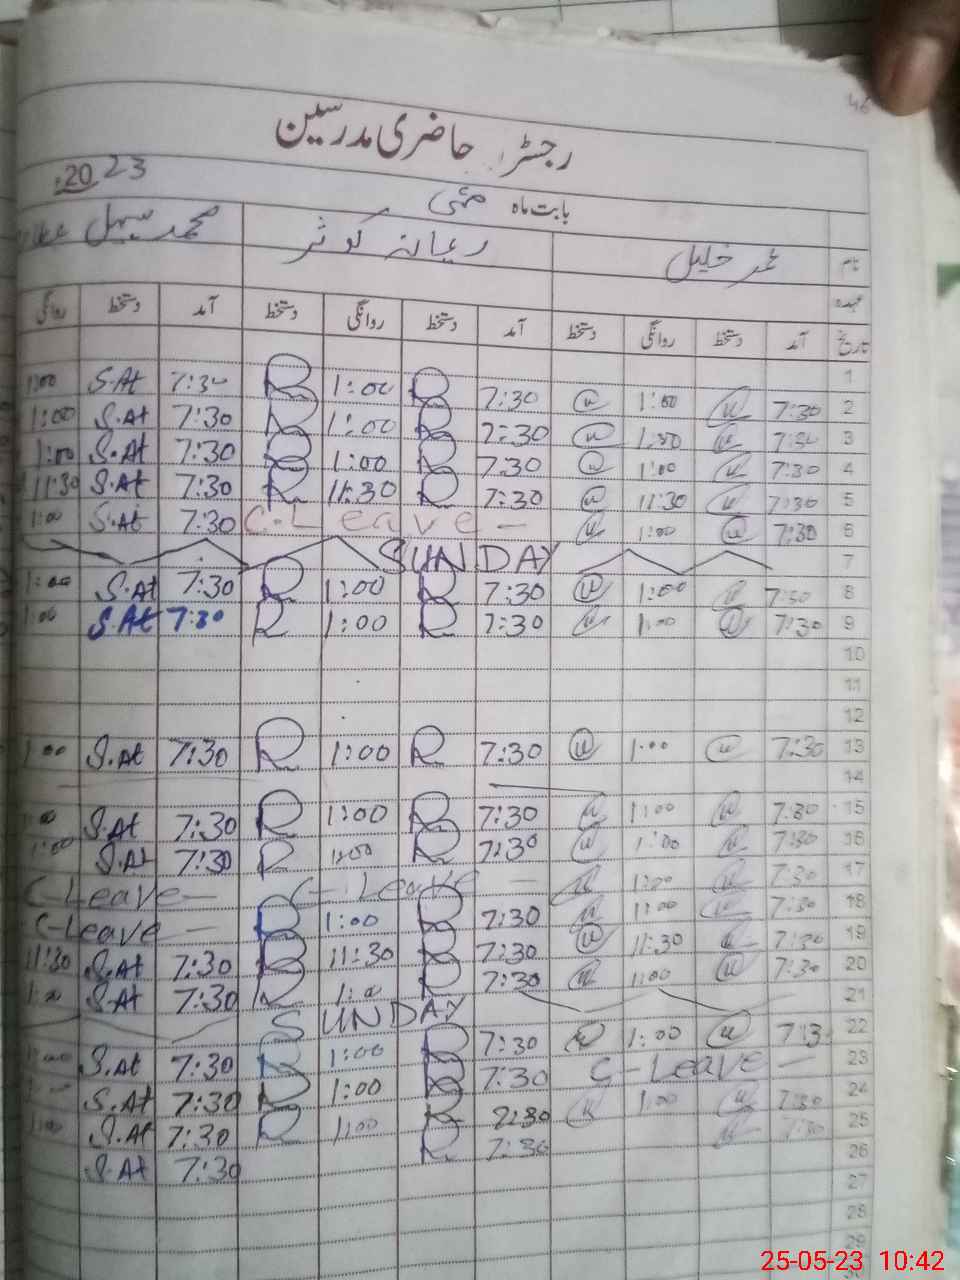 46
رجسٹر حاضری مدرسین
بابت ماہ مئی 2023ء
نام عمر خلیل ریحانہ کوثر محمد سہیل
عہدہ
تاریخ آمد دستخط روانگی دستخط آمد دستخط روانگی دستخط آمد دستخط روانگی
1
2 7:30 1:00 7:30 R 1:00 R 7:30 S.At 1:00
3 7:30 1:00 7:30 R 1:00 R 7:30 S.At 1:00
4 7:30 1:00 7:30 R 1:00 R 7:30 S.At 1:00
5 7:30 11:30 7:30 R 11:30 R 7:30 S.At 11:30
6 7:30 1:00 C-Leave- 7:30 S.At 1:00
7 SUNDAY
8 7:30 1:00 7:30 R 1:00 R 7:30 S.At 1:00
9 7:30 1:00 7:30 R 1:00 R 7:30 S.At 1:00
10
11
12
13 7:30 1:00 7:30 R 1:00 R 7:30 S.At 1:00
14
15 7:30 1:00 7:30 R 1:00 R 7:30 S.At
16 7:30 1:00 7:30 R 1:00 R 7:30 S.At 1:00
17 7:30 1:00 C-Leave- C-Leave-
18 7:30 11:00 7:30 R 1:00 R C-Leave-
19 7:30 11:30 7:30 R 11:30 R 7:30 S.At 11:30
20 7:30 1:00 7:30 R 1:00 R 7:30 S.At 1:00
21 SUNDAY
22 7:3 1:00 7:30 R 1:00 R 7:30 S.At 1:00
23 C-Leave- 7:30 R 1:00 R 7:30 S.At
24 7:30 1:00 7:30 R 1:00 R 7:30 S.At 1:00
25 7:30 7:30 R 7:30 S.At
26
27
28
29
25-05-23 10:42